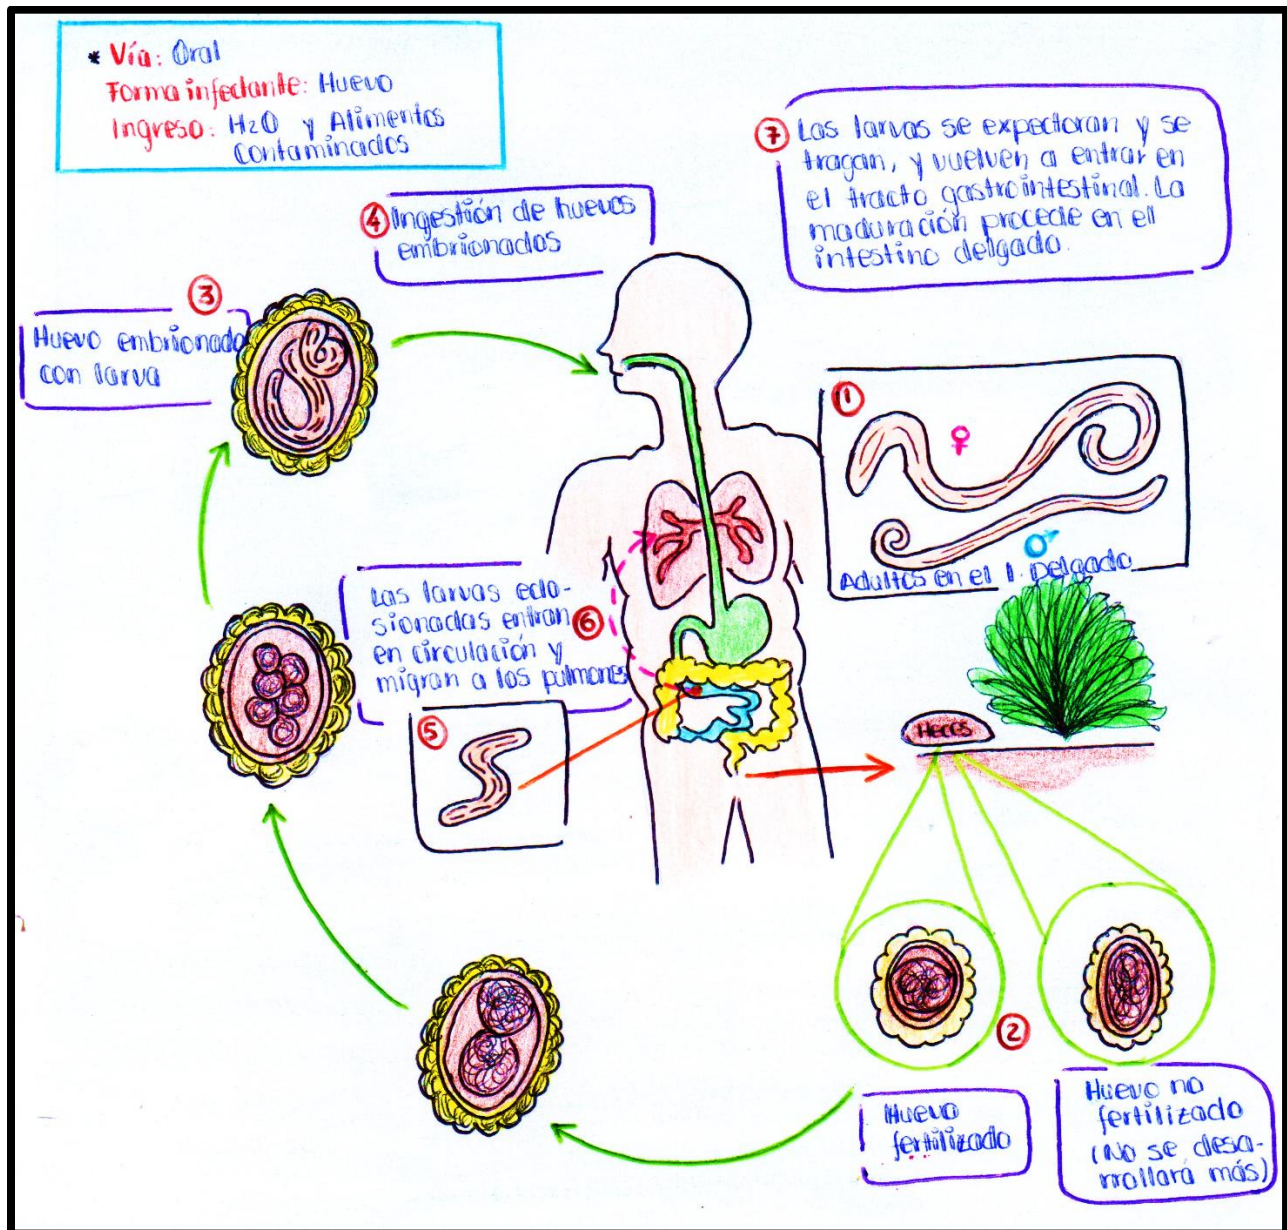 * Vía: Oral
Forma infectante: Huevo
Ingreso: H2O y Alimentos
Contaminados
⑦ Las larvas se expectoran y se
tragan, y vuelven a entrar en
el tracto gastrointestinal. La
maduración procede en el
intestino delgado.
④ Ingestión de huevos
embrionados
③
Huevo embrionado
con larva
①
♀
♂
Adultos en el I. Delgado
Las larvas eclo-
sionadas entran ⑥
en circulación y
migran a los pulmones
⑤
Heces
②
Huevo
fertilizado
Huevo no
fertilizado
(No se desa-
rrollará más)